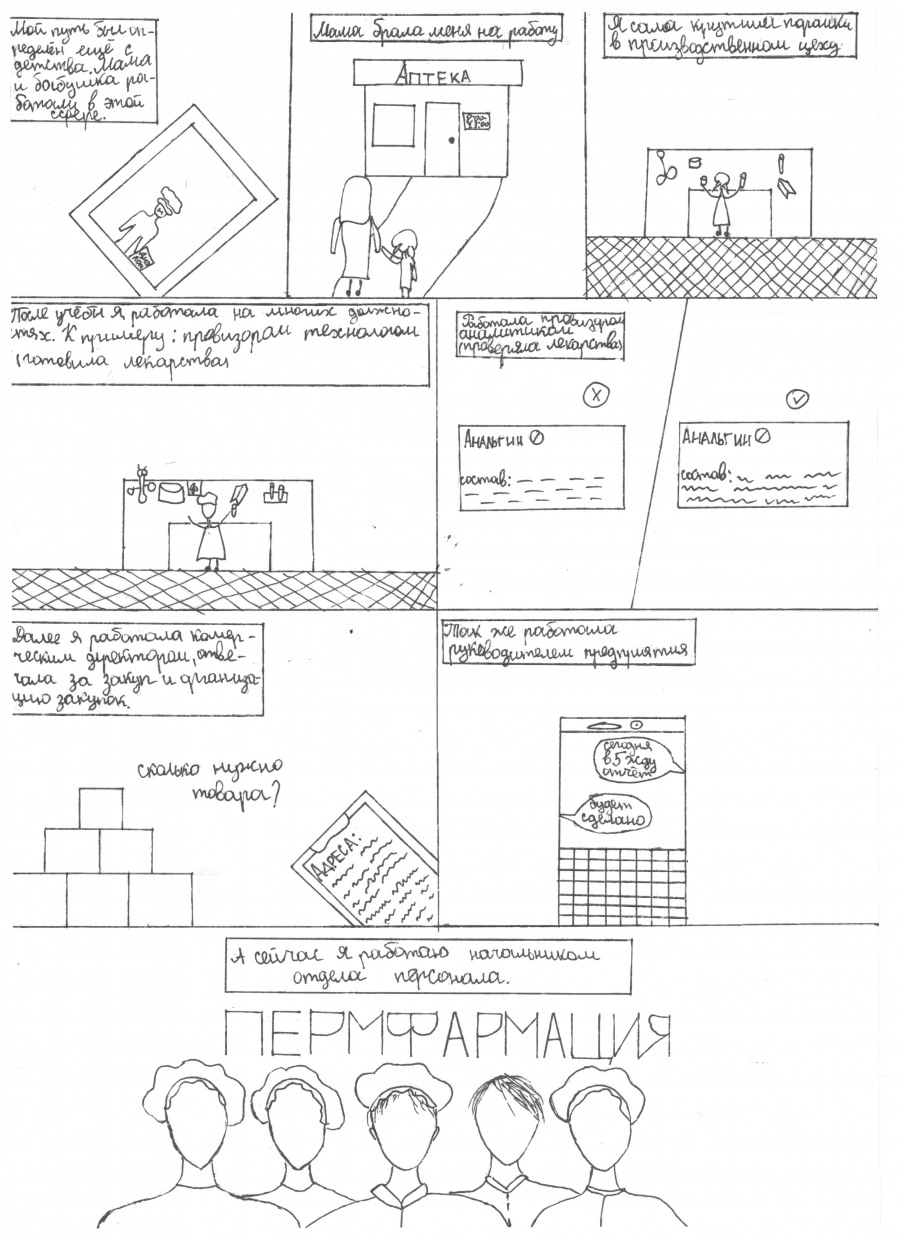 Мой путь был оп-
ределён ещё с
детства. Мама
и бабушка ра-
ботали в этой
сфере.
Мама брала меня на работу
АПТЕКА
Я сама крутила порошки
в производственном цеху
После учёбы я работала на многих должно-
стях. К примеру: провизором технологом
(готовила лекарства)
Работала провизором
аналитиком
(проверяла лекарства)
Анальгин
состав:
Анальгин
состав:
Далее я работала комер-
ческим директором, отве-
чала за закуп и организа-
цию закупок.
сколько нужно
товара?
Адреса:
Так же работала
руководителем предприятия
сегодня
в 5 жду
отчёт
будет
сделано
А сейчас я работаю начальником
отдела персонала.
ПЕРМФАРМАЦИЯ